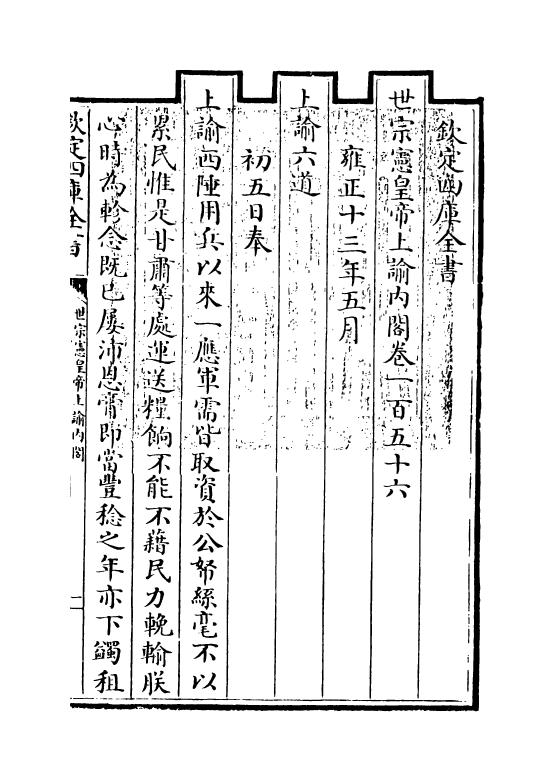 欽定四庫全書
世宗憲皇帝上諭内閣卷一百五十六
雍正十三年五月
上諭六道
初五日奉
上諭西陲用兵以來一應軍需皆取資於公帑絲毫不以
累民惟是甘肅等處運送糧餉不能不藉民力輓輸朕
心時為軫念既已屢沛恩膏即當豐稔之年亦下蠲租
欽定四庫全書
世宗憲皇帝上諭内閣